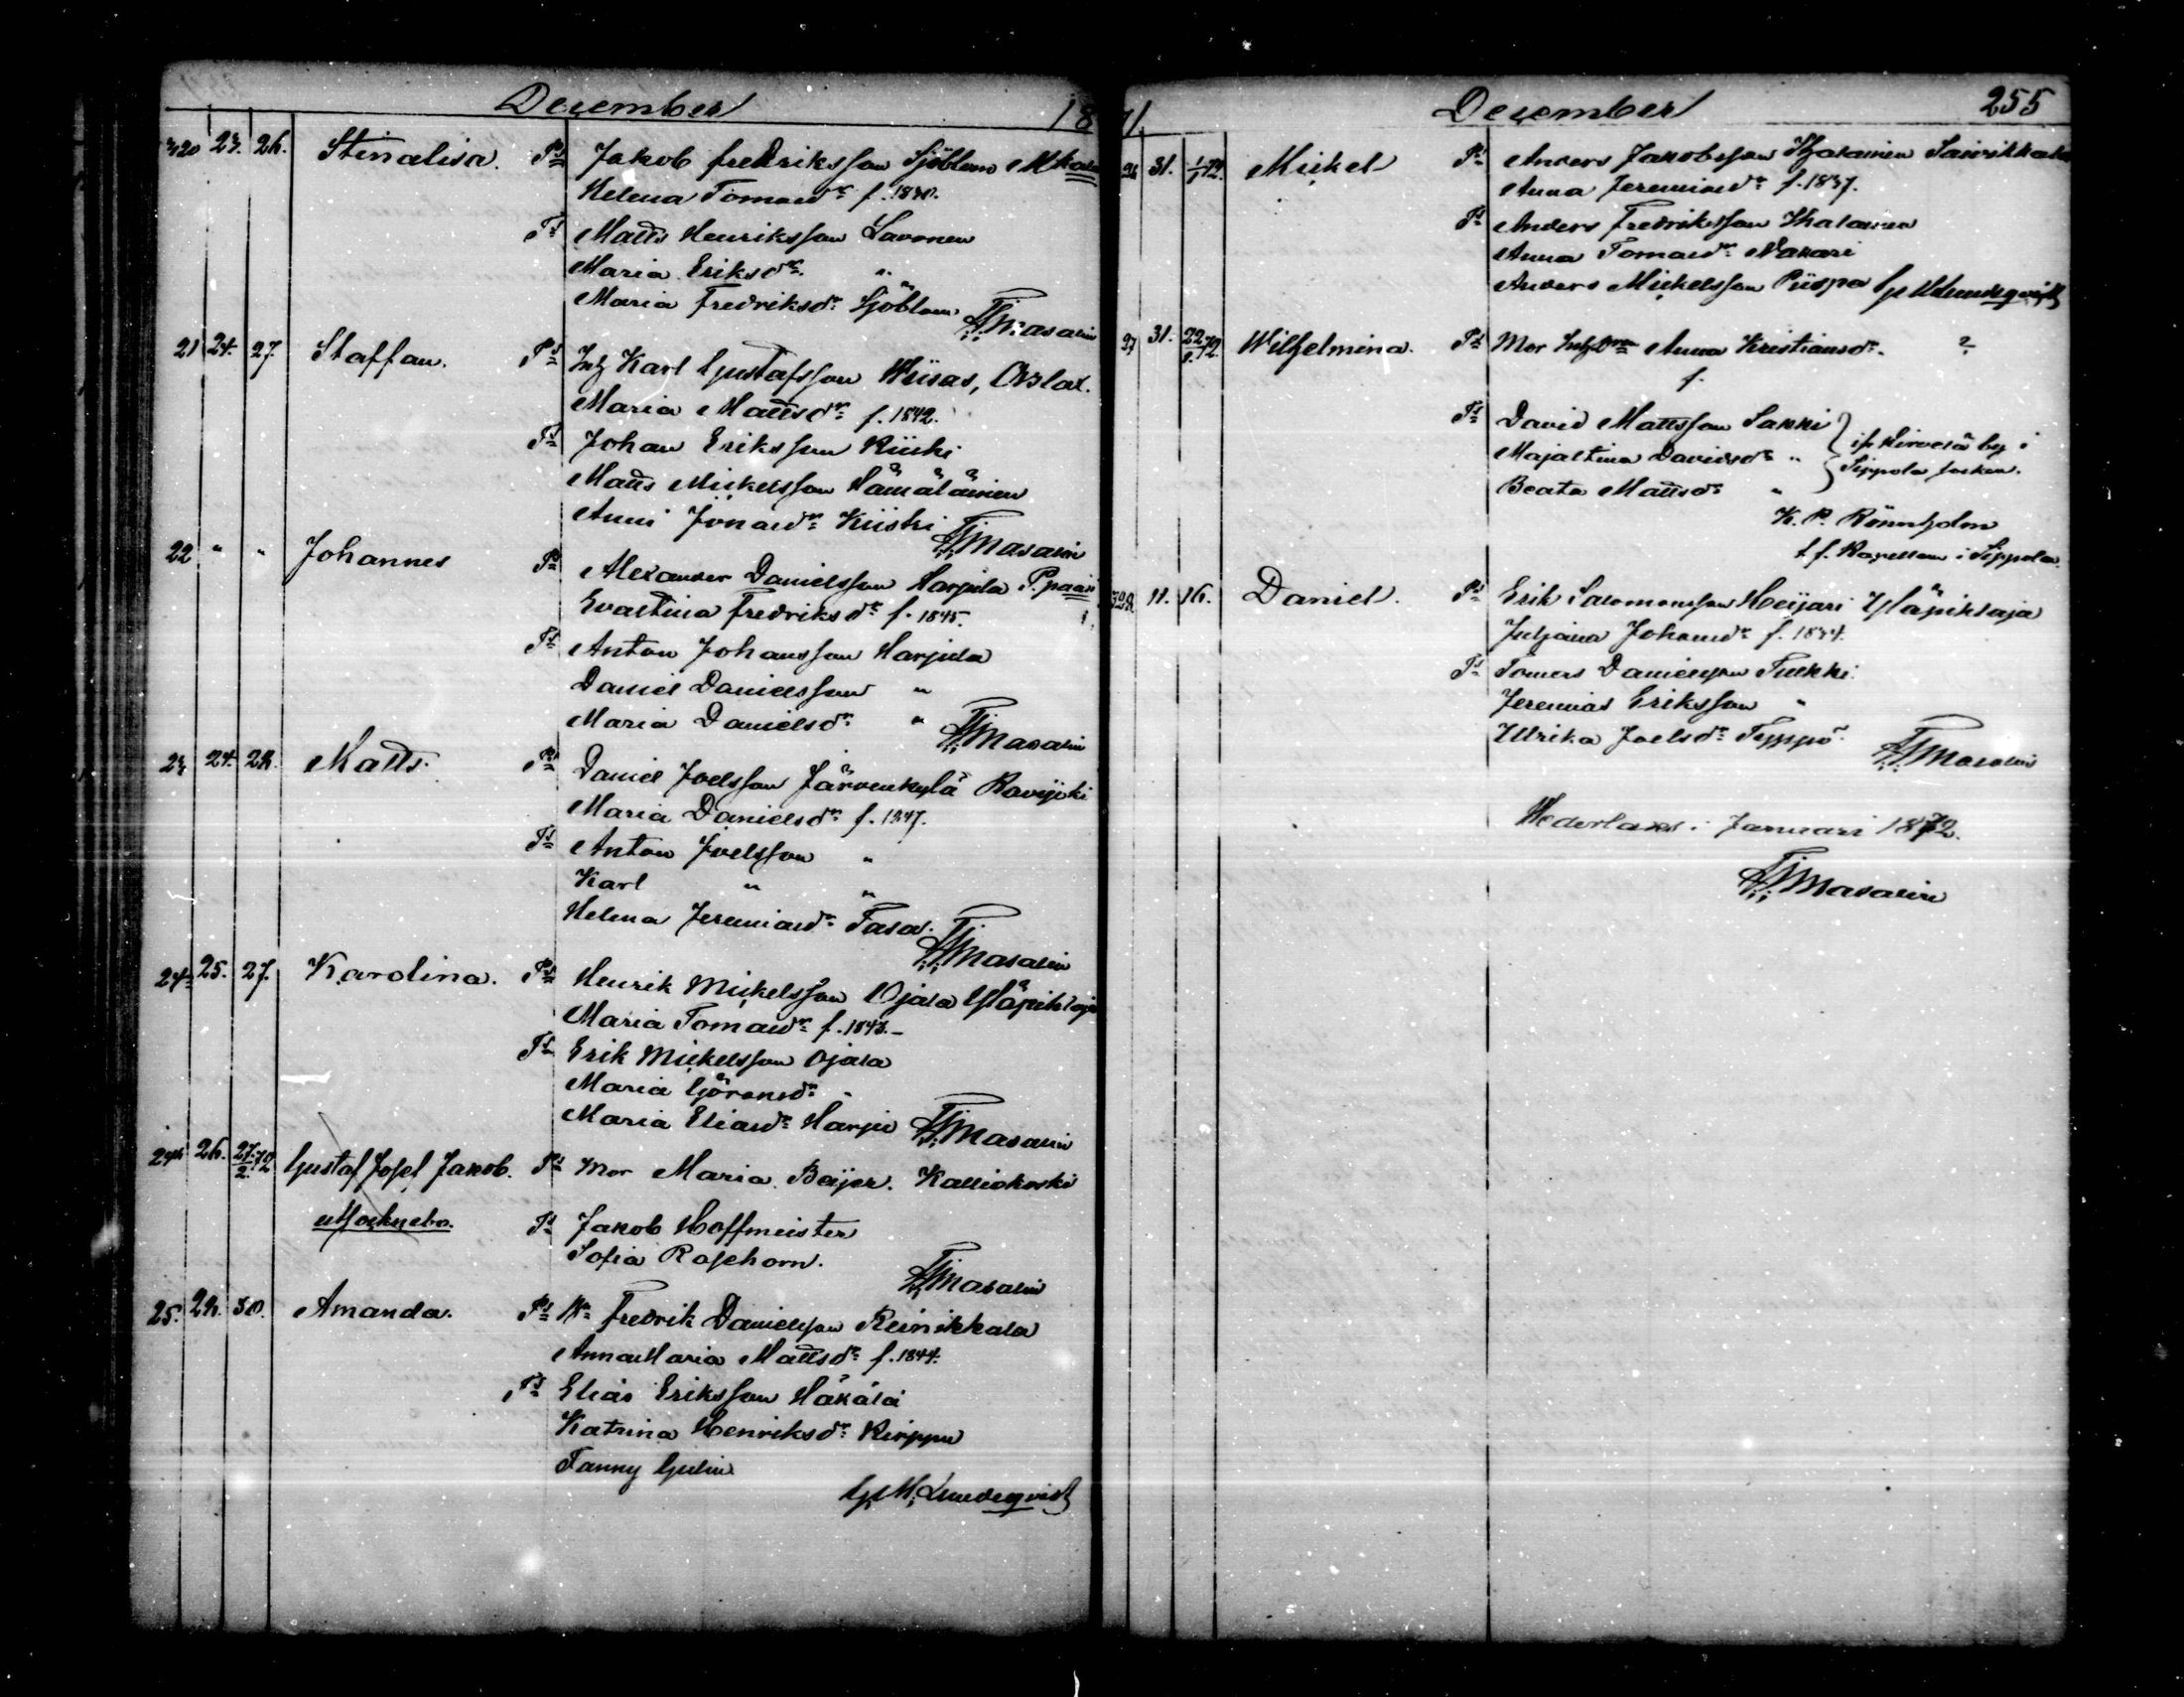 December 18
320 23. 26. Stinalisa. Ps Jakob Fredriksson Sjöblom
Helena Tomasdr f. 1830.
Ts Matts Henriksson Savonen
Maria Eriksdr "
Maria Fredriksdr Sjöblom Masalin
21 24. 27. Staffan. Ps Inh Karl Gustafsson
Maria Mattsdr f. 1842.
Ts Johan Eriksson Kiiski
Matts Mickelsson Hämäläinen
Anni Jonasdr Kiiski Masalin
22 " " Johannes Ps Alexander Danielsson Harjula P.pää
Evastina Fredriksdr f. 1845.
Ts Anton Johansson Harjula
Daniel Danielsson "
Maria Danielsdr " Masalin
23 24. 28. Matts. Ps Daniel Joelsson Järvenkylä Ravijoki
Maria Danielsdr f. 1847.
Ts Anton Joelsson "
Karl " "
Helena Jeremiasdr Tasa. Masalin
24 25. 27. Karolina. Ps Henrik Mickelsson Ojala Yläpihlaja
Maria Tomasdr f. 1843. –
Ts Erik Mickelsson Ojala
Maria Göransdr "
Maria Eliasdr Harju Masalin
26. 27/2 72 Gustaf Josef Jakob. Ps Mor Maria Beijer. Kalliokoski
Ts Jakob Hoffmeister
Sofia Rosehorn.
Masalin
25. 28. 30. Amanda. Ps Fredrik Danielsson Reinikkala
Anna Maria Mattsdr f. 1844.
Ts Elias Eriksson Häkälä
Katrina Henriksdr Kirppu
Fanny Gulin
G. M. Lundeqvist
71. December 255
26 31. 1/1 72. Mickel Ps Anders Jakobsson
Anna Jeremiasdr f. 1837.
Ts Anders Fredriksson
Anna Tomasdr Nakari
Anders Mickelsson Piispa G. M. Lundeqvist
27 31. 72. Wilhelmina. Ps Mor Anna Kristiansdr. ?
f.
Ts David Mattsson Sakki
Majastina Davidsdr " if Kirvelä by i
Beata Mattsdr " Sippola socken.
K. P. Rönnholm
t.f. Kapellan i Sippola.
328. 11. 16. Daniel. Ps Erik Salomonsson Heijari Yläpihlaja
Juljana Johansdr f. 1834.
Ts Tomas Danielsson Tulkki
Jeremias Eriksson "
Ulrika Joelsdr Teppo. Masalin
Wederlaks i Januari 1872.
Masalin